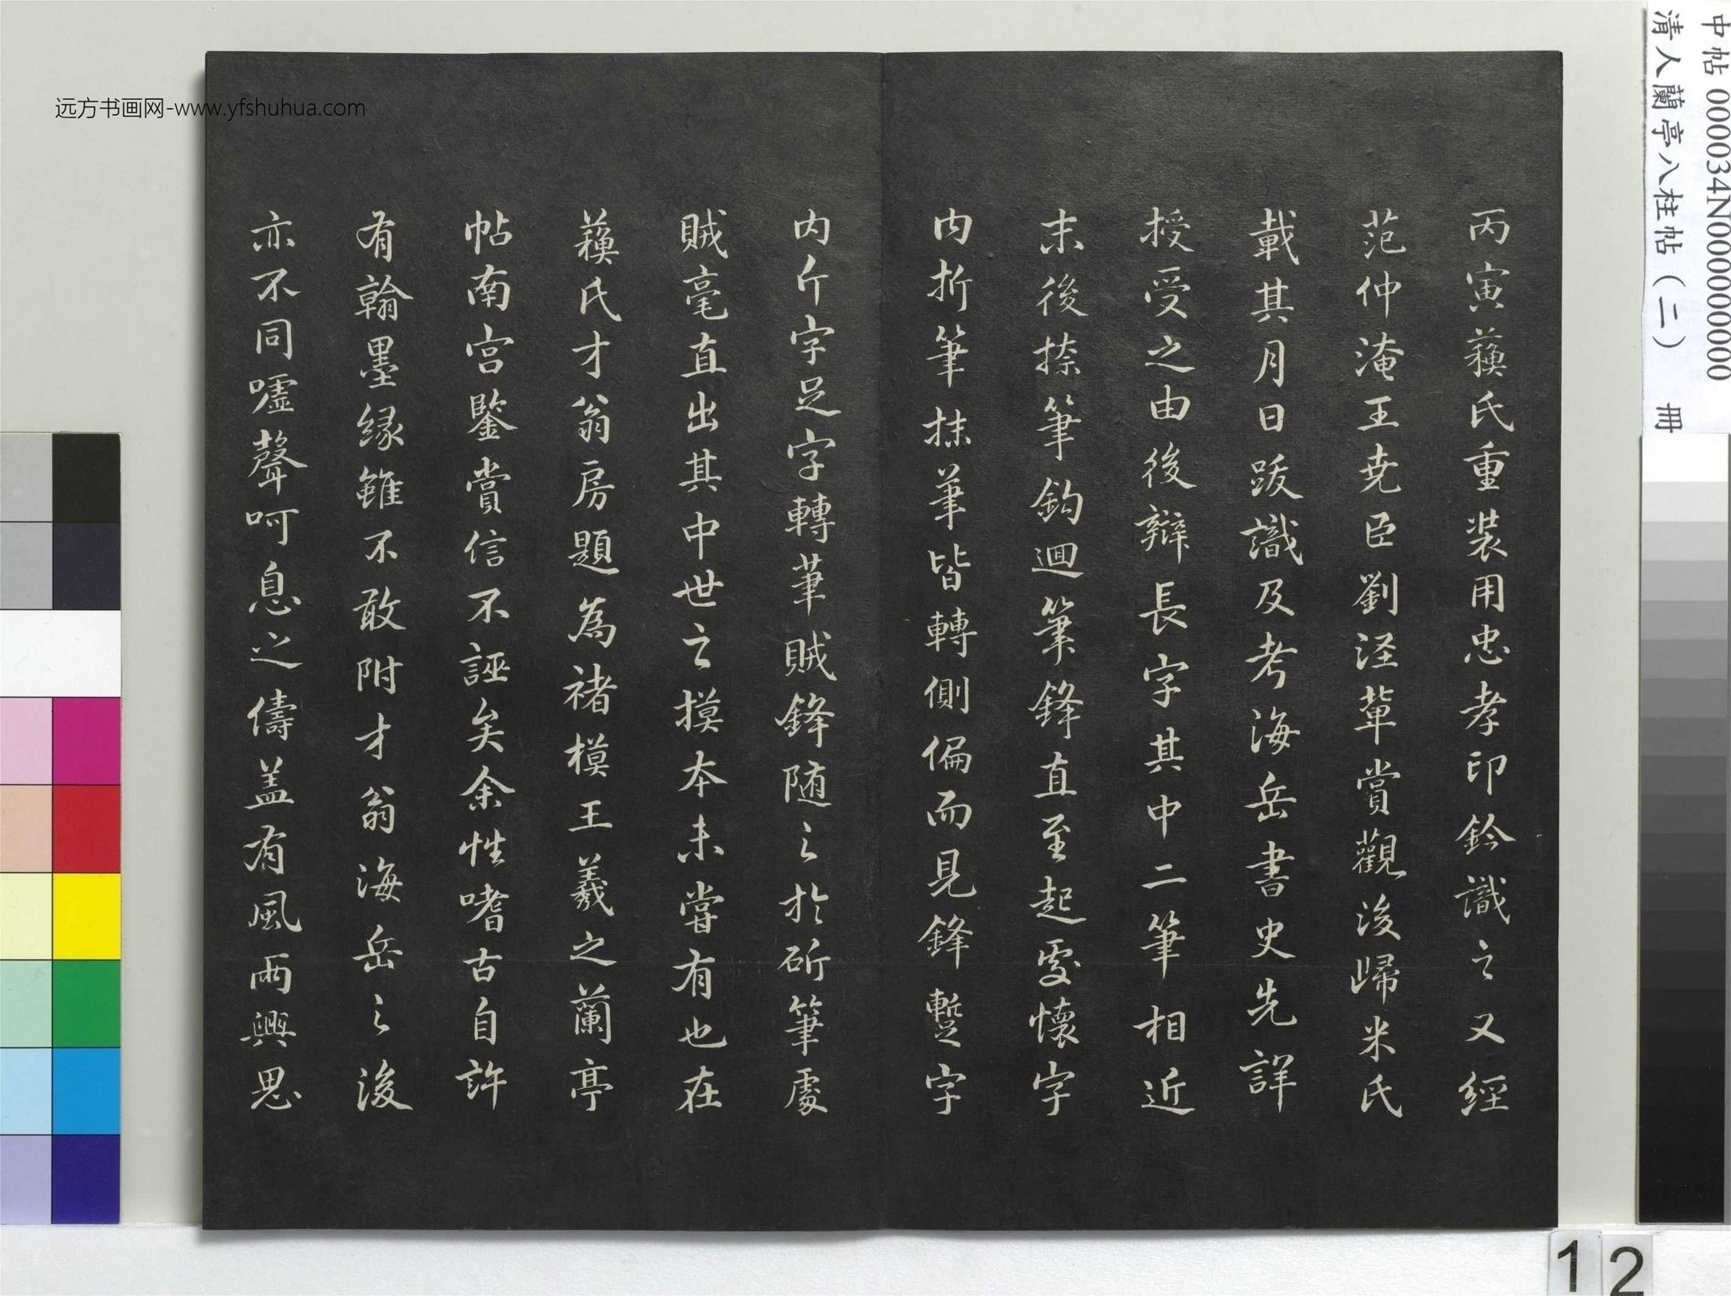 丙寅蘓氏重裝用忠孝印鈐識之又經
范仲淹王尭臣劉涇軰賞觀後歸米氏
載其月日跋識及考海岳書史先詳
授受之由後辯長字其中二筆相近
末後捺筆鈎迴筆鋒直至起處懷字
内折筆抹筆皆轉側偏而見鋒蹔字
内斤字足字轉筆賊鋒随之於斫筆處
賊毫直出其中世之摸本未甞有也在
蘓氏才翁房題為褚模王羲之蘭亭
帖南宫鑒賞信不誣矣余性嗜古自許
有翰墨縁雖不敢附才翁海岳之後
亦不同嘘聲呵息之儔盖有風雨興思
远方书画网-www.yfshuhua.com
中帖 000034N000000000
清人蘭亭八柱帖(二) 冊
12